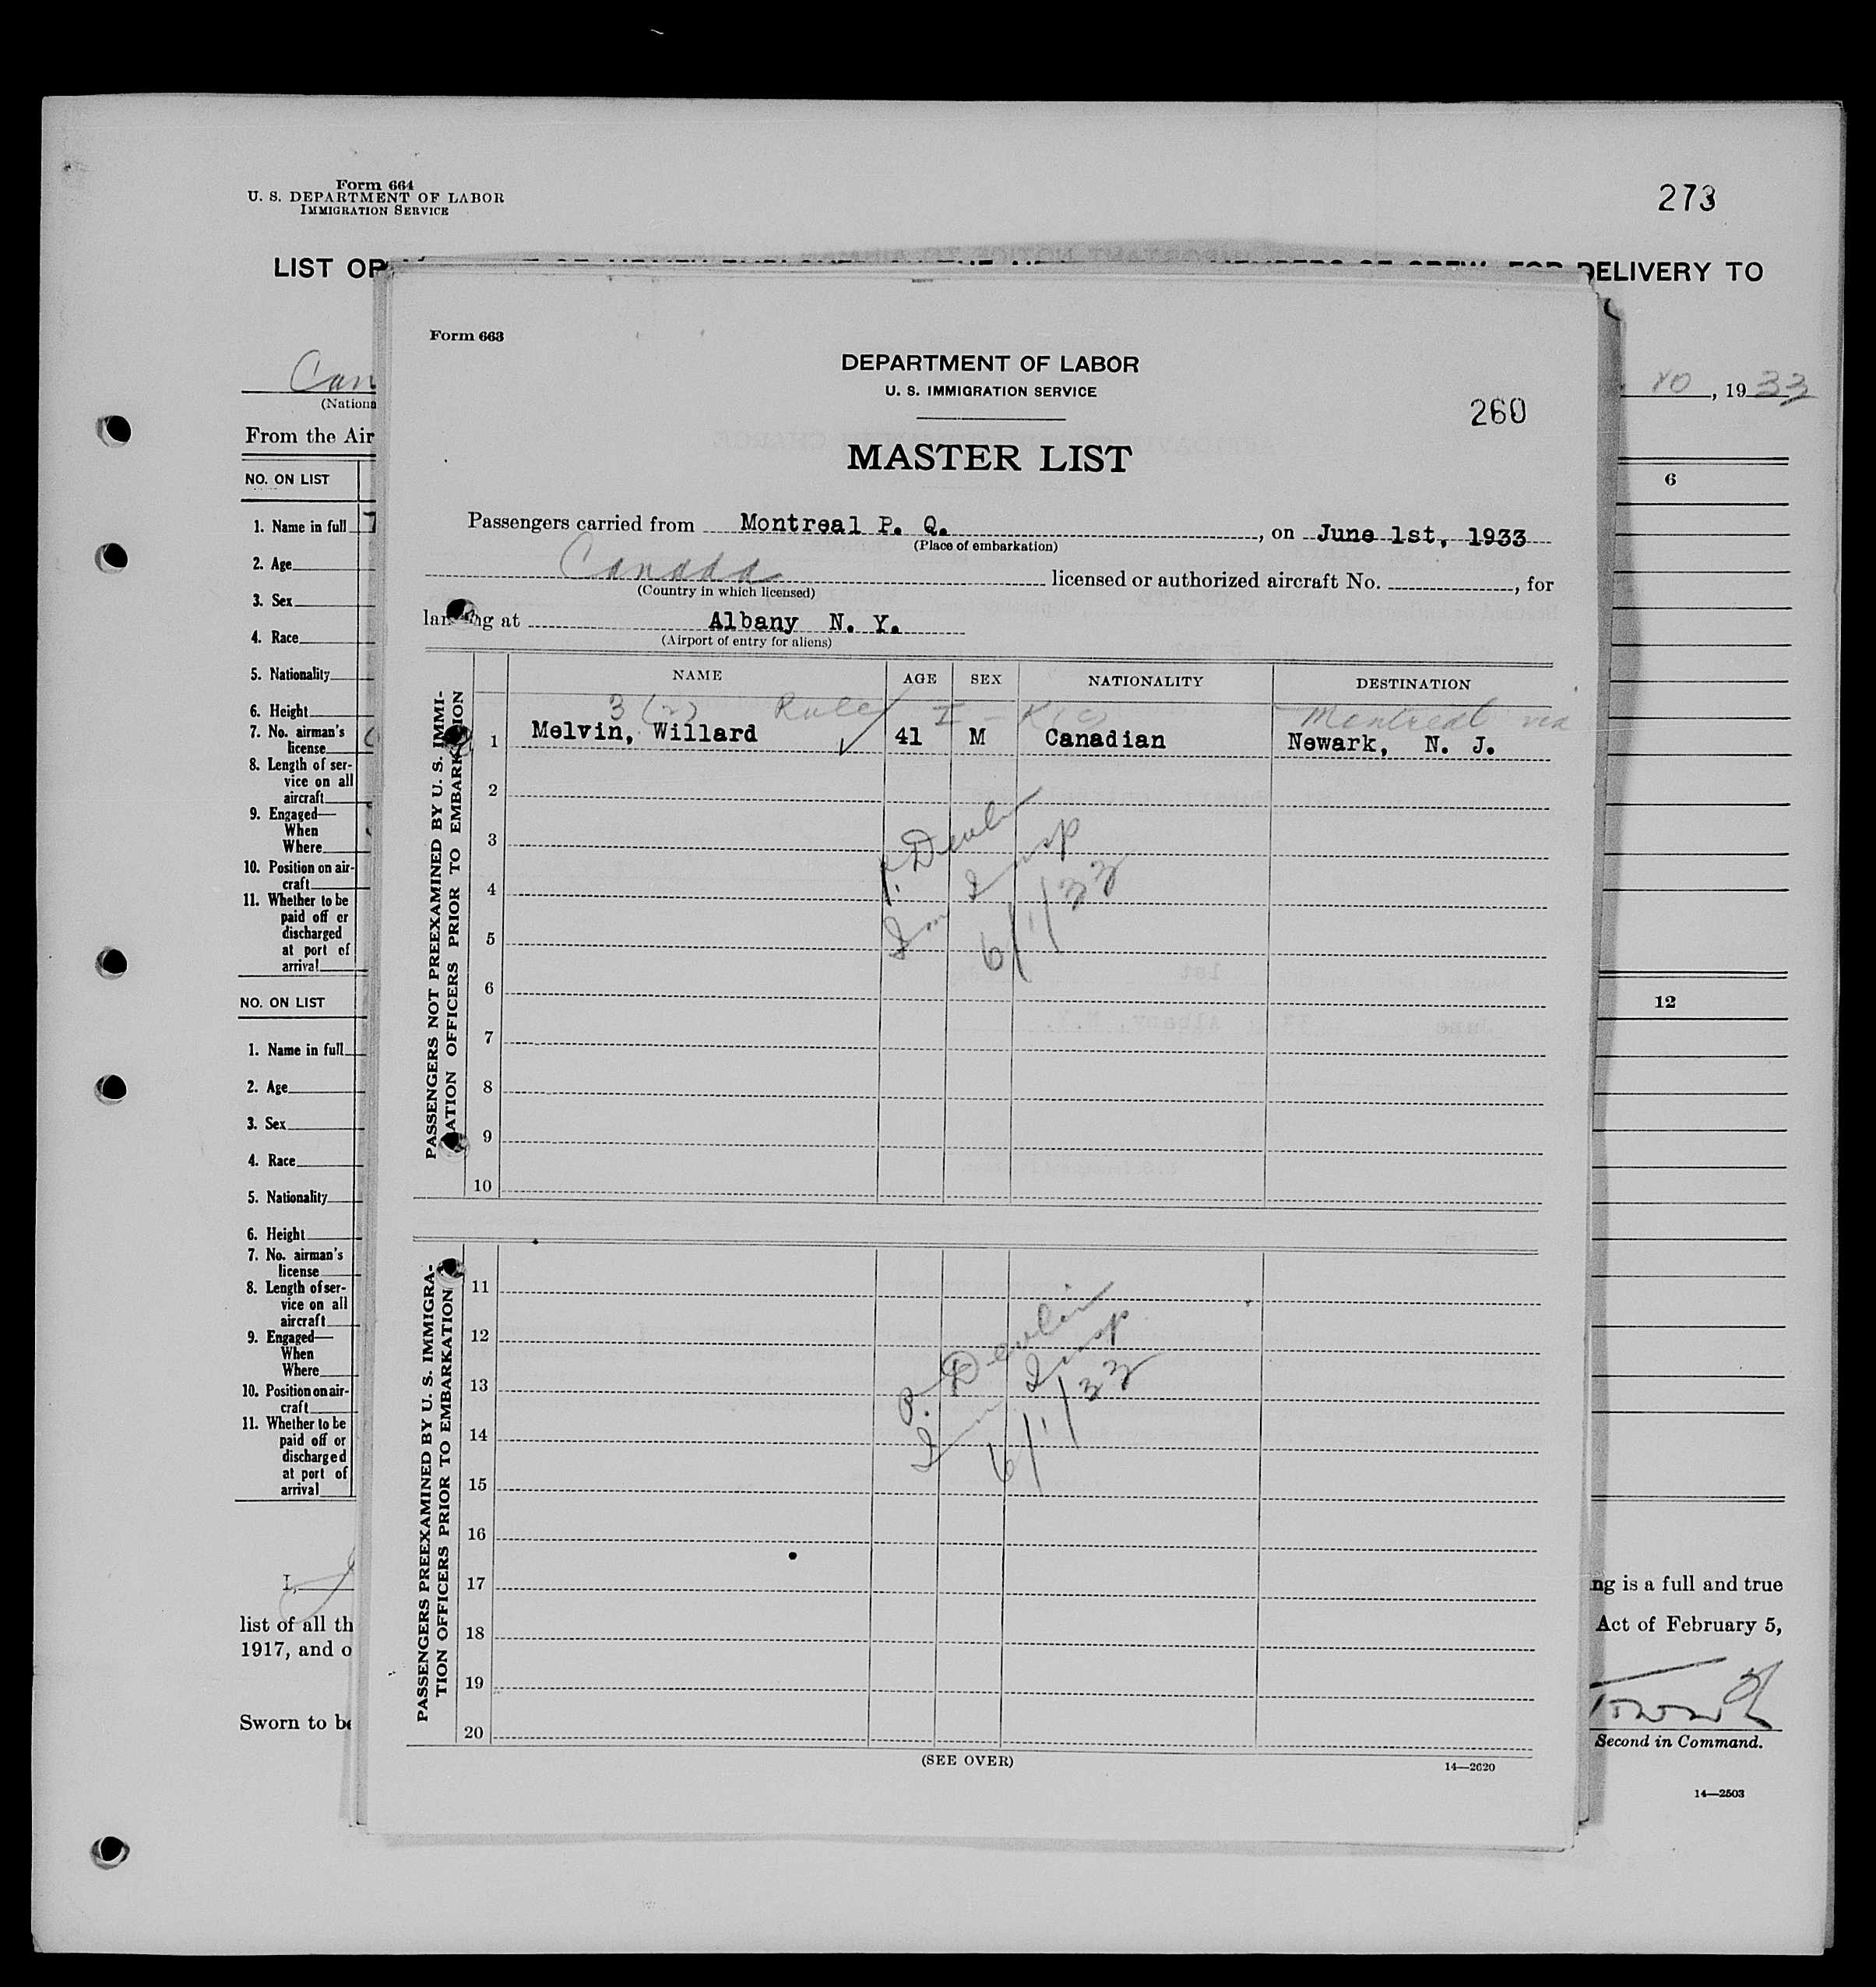 Form 664
U. S. DEPARTMENT OF LABOR
IMMIGRATION SERVICE
273
LIST OR
DELIVERY TO
Can
(Nationa
10, 1933
From the Air
NO. ON LIST
6
1. Name in full
2. Age
3. Sex
4. Race
5. Nationality
6. Height
7. No. airman's
license
8. Length of ser-
vice on all
aircraft
9. Engaged—
When
Where
10. Position on air-
craft
11. Whether to be
paid off or
discharged
at port of
arrival
NO. ON LIST
12
1. Name in full
2. Age
3. Sex
4. Race
5. Nationality
6. Height
7. No. airman's
license
8. Length of ser-
vice on all
aircraft
9. Engaged—
When
Where
10. Position on air-
craft
11. Whether to be
paid off or
discharged
at port of
arrival
I,
ng is a full and true
list of all th
Act of February 5,
1917, and o
Sworn to be
Second in Command.
14—2503
Form 663
DEPARTMENT OF LABOR
U. S. IMMIGRATION SERVICE
260
MASTER LIST
Passengers carried from Montreal P. Q., on June 1st, 1933
(Place of embarkation)
Canada licensed or authorized aircraft No. , for
(Country in which licensed)
landing at Albany N. Y.
(Airport of entry for aliens)
PASSENGERS NOT PREEXAMINED BY U. S. IMMI-
GRATION OFFICERS PRIOR TO EMBARKATION
NAME AGE SEX NATIONALITY DESTINATION
3 (2) Rule I - K(c) Montreal via
1 Melvin, Willard ✓ 41 M Canadian Newark, N. J.
2
3
4
5
6
7
8
9
10
P. Devlin
Imm Insp
6/1/33
PASSENGERS PREEXAMINED BY U. S. IMMIGRA-
TION OFFICERS PRIOR TO EMBARKATION
11
12
13
14
15
16
17
18
19
20
P. Devlin
Imm Insp
6/1/33
(SEE OVER)
14—2620